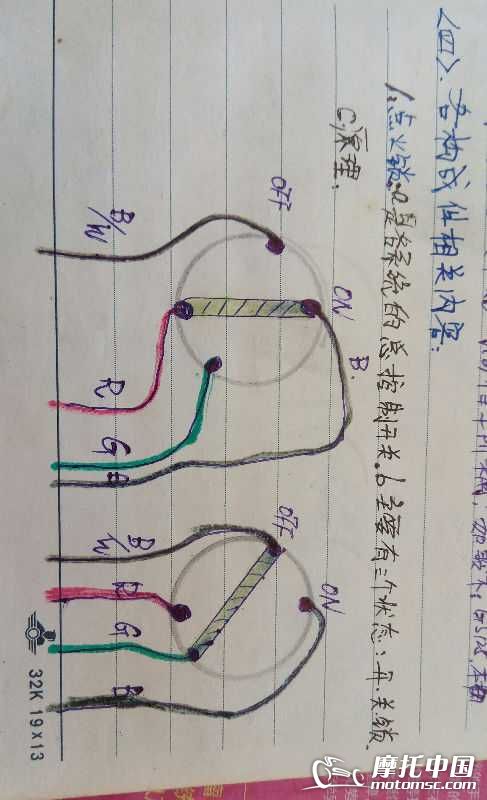 〈四〉、各构成件相关内容：
1、点火锁：a、是各系统的总控制开关。b、主要有三个状态：开.关.锁.
C、原理：
OFF
ON
B.
B/W
R
G
B
OFF
ON
B/W
R
G
B
32K 19×13
摩托中国
motomsc.com